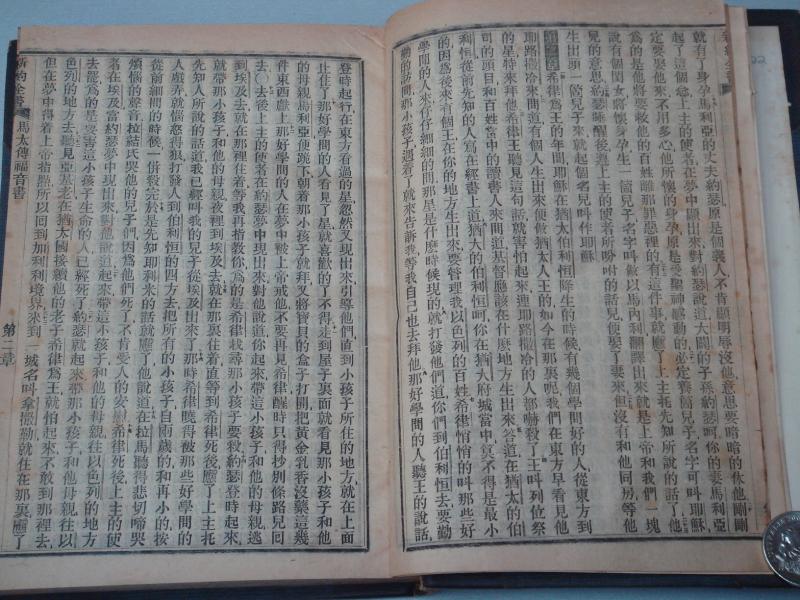 就有了身孕馬利亞的丈夫約瑟原是個義人不肯顯明辱沒他意思要暗暗的休他剛剛
起了這個主上主的使者在夢中顯出來對約瑟說道大闢的子孫約瑟呵你的妻馬利亞
定要娶他來不用多心他所懷的身孕原是受聖神感動的必定養箇兒子名字可叫耶穌
為的是他將要救他的百姓離那罪惡裡的有這件事就應了上主托先知所說的話了他
說有個閨女將懷身孕生一箇兒子名字叫做以馬內利翻譯出來就是上帝和我們一塊
兒的意思約瑟睡醒後遵上主的使者所吩咐的話兒便娶了妻來但沒有和他同房等他
生出頭一箇兒子來就起個名兒叫作耶穌
希律做王的年間耶穌在猶太伯利恒降生的時候有幾個學問好的人從東方到
耶路撒冷來問道有個人生出來便做猶太人王的如今在那裏呢我們在東方早看見他
的星特來拜他希律王聽見這句話就害怕起來連耶路撒冷的人都嚇殺了王叫列位祭
司的頭目和百姓當中的讀書人來問道基督應該在什麼地方生出來答道在猶太的伯
利恒從前先知的人寫在經書上道猶大的伯利恒呵你在猶大府城當中算不得是最小
的因為後來有個王在你的地方生出來要管理我以色列的百姓希律悄悄的叫那些好
學問的人來仔仔細細的問那星是什麼時候現的就打發他們道你到伯利恒去要勤
勤的訪問那小孩子遇着了就來告訴我等我自己也去拜他那好學問的人聽王的說話
登時起行在東方看過的星忽然又現出來引導他們直到小孩子所住的地方就在上面
止住了那好學問的人看見了星就喜歡的了不得走到屋子裏面就看見那小孩子和他
的母親馬利亞便跪下朝着那小孩子就拜又將寶貝的盒子打開把黃金乳香沒藥這幾
件東西獻上那好學問的人在夢中被上帝戒他不要再見希律醒時只得抄別條路兒回
去去後上主的使者在約瑟夢中現出來對他說道你起來帶這小孩子和他的母親逃
到埃及去就在那裡住着等我再指教你為的是希律栽尋那小孩子要殺約瑟登時起來
就帶那小孩子和他的母親夜裡到埃及去就在那裏住着直等到希律死後應了上主托
先知人所說的話道我已經叫我的兒子從埃及出來了那時希律曉得被那些好學問的
人戲弄就惱怒得狠打發人到伯利恒的四方去把所有的小孩子自兩歲的和再小的按
從前細問的時候一併殺完於是先知耶利米的話就應了他說道在拉馬聽得悲切啼哭
煩惱的聲音拉結氏哭他的兒子們因為他們死了不肯受人的安慰希律死後上主的使
者在埃及當約瑟夢中現出來對他說道起來帶這小孩子和他的母親往以色列的地方
去罷為的是要害這小孩子性命的人已經死了約瑟就起來帶那小孩子和他母親往以
色列的地方去聽見亞基老在猶太國接續他的老子希律為王就怕起來不敢到那裡去
但在夢中得着上帝指點所以回到加利利境界來到一城名叫拿撒勒就住在那裏應了
新約全書 馬太傳福音書 第二章